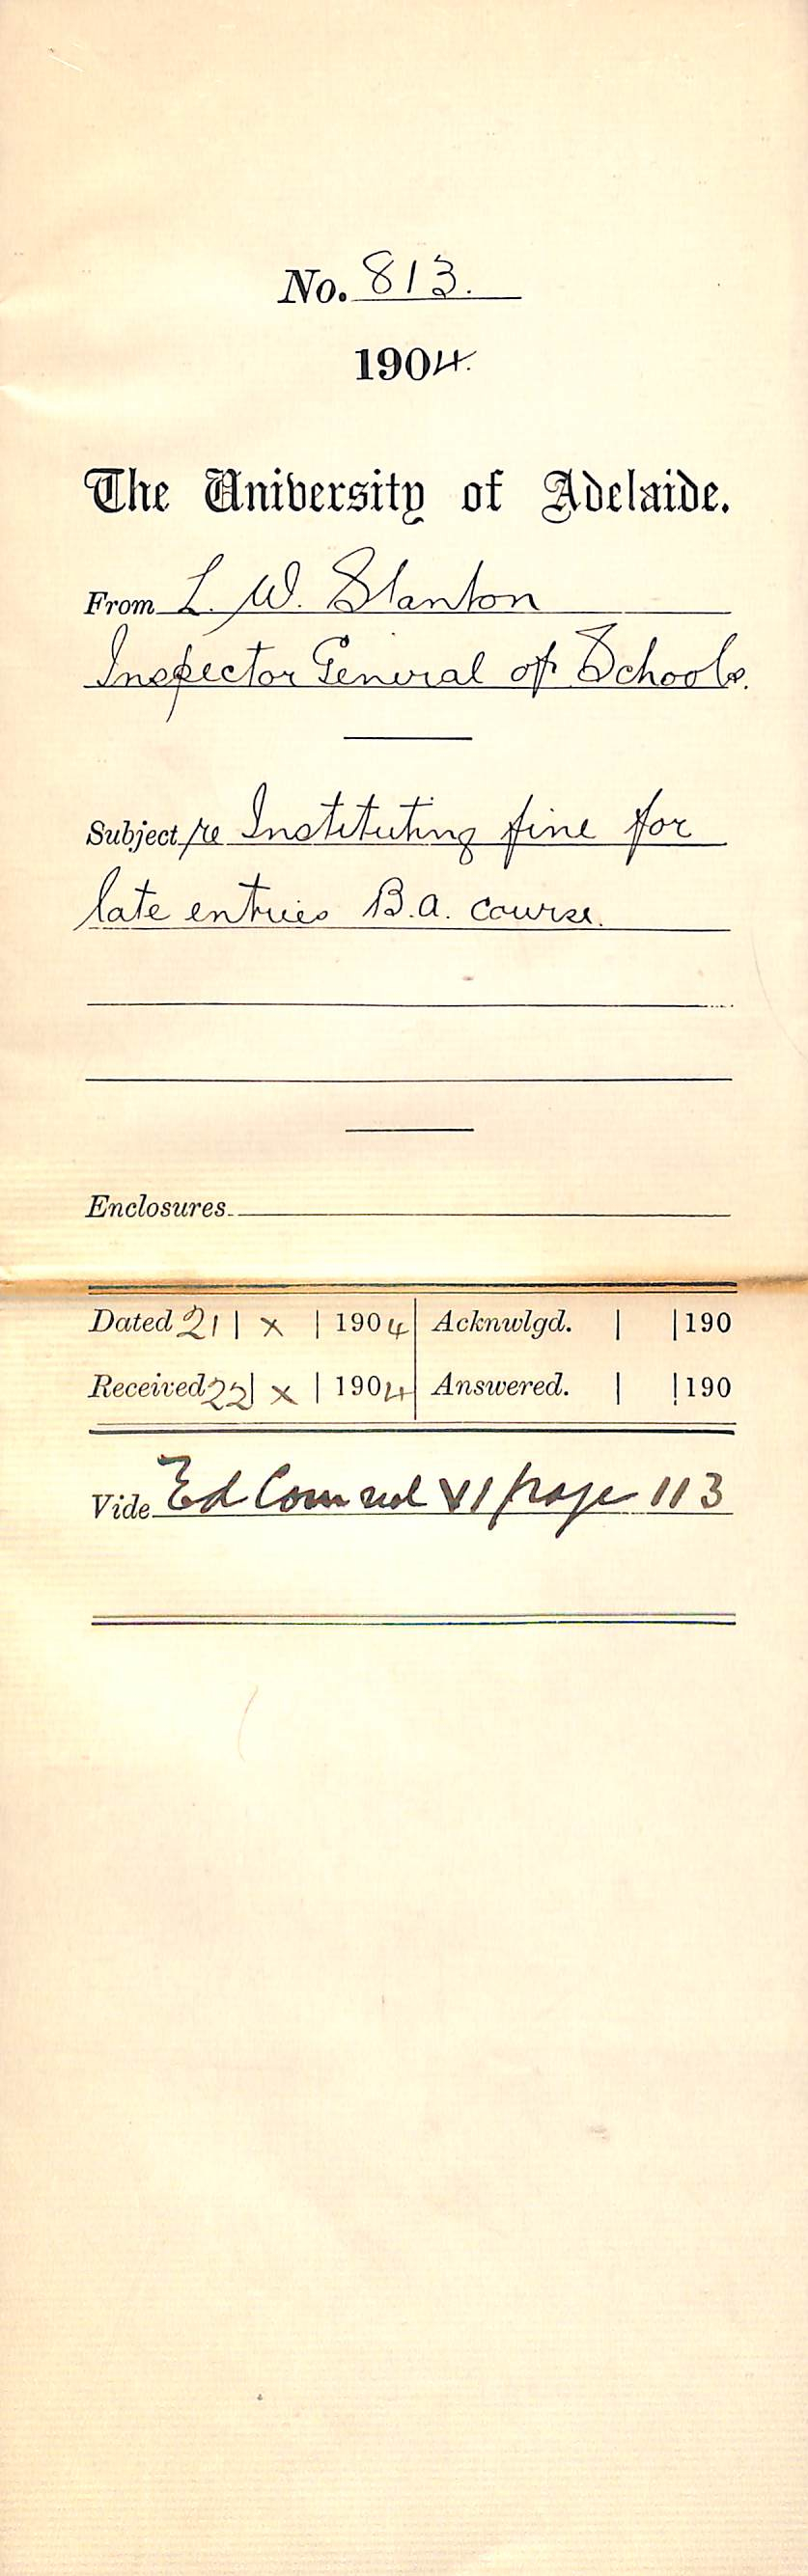 No. 813.
1904.
The University of Adelaide.
From L. W. Stanton
Inspector General of Schools.
Subject re Instituting fine for
late entries B.A. course.
Enclosures
Dated 21 | X | 1904 Acknwlgd. | | 190
Received 22 | X | 1904 Answered. | | 190
Vide Ed Com vol VI page 113